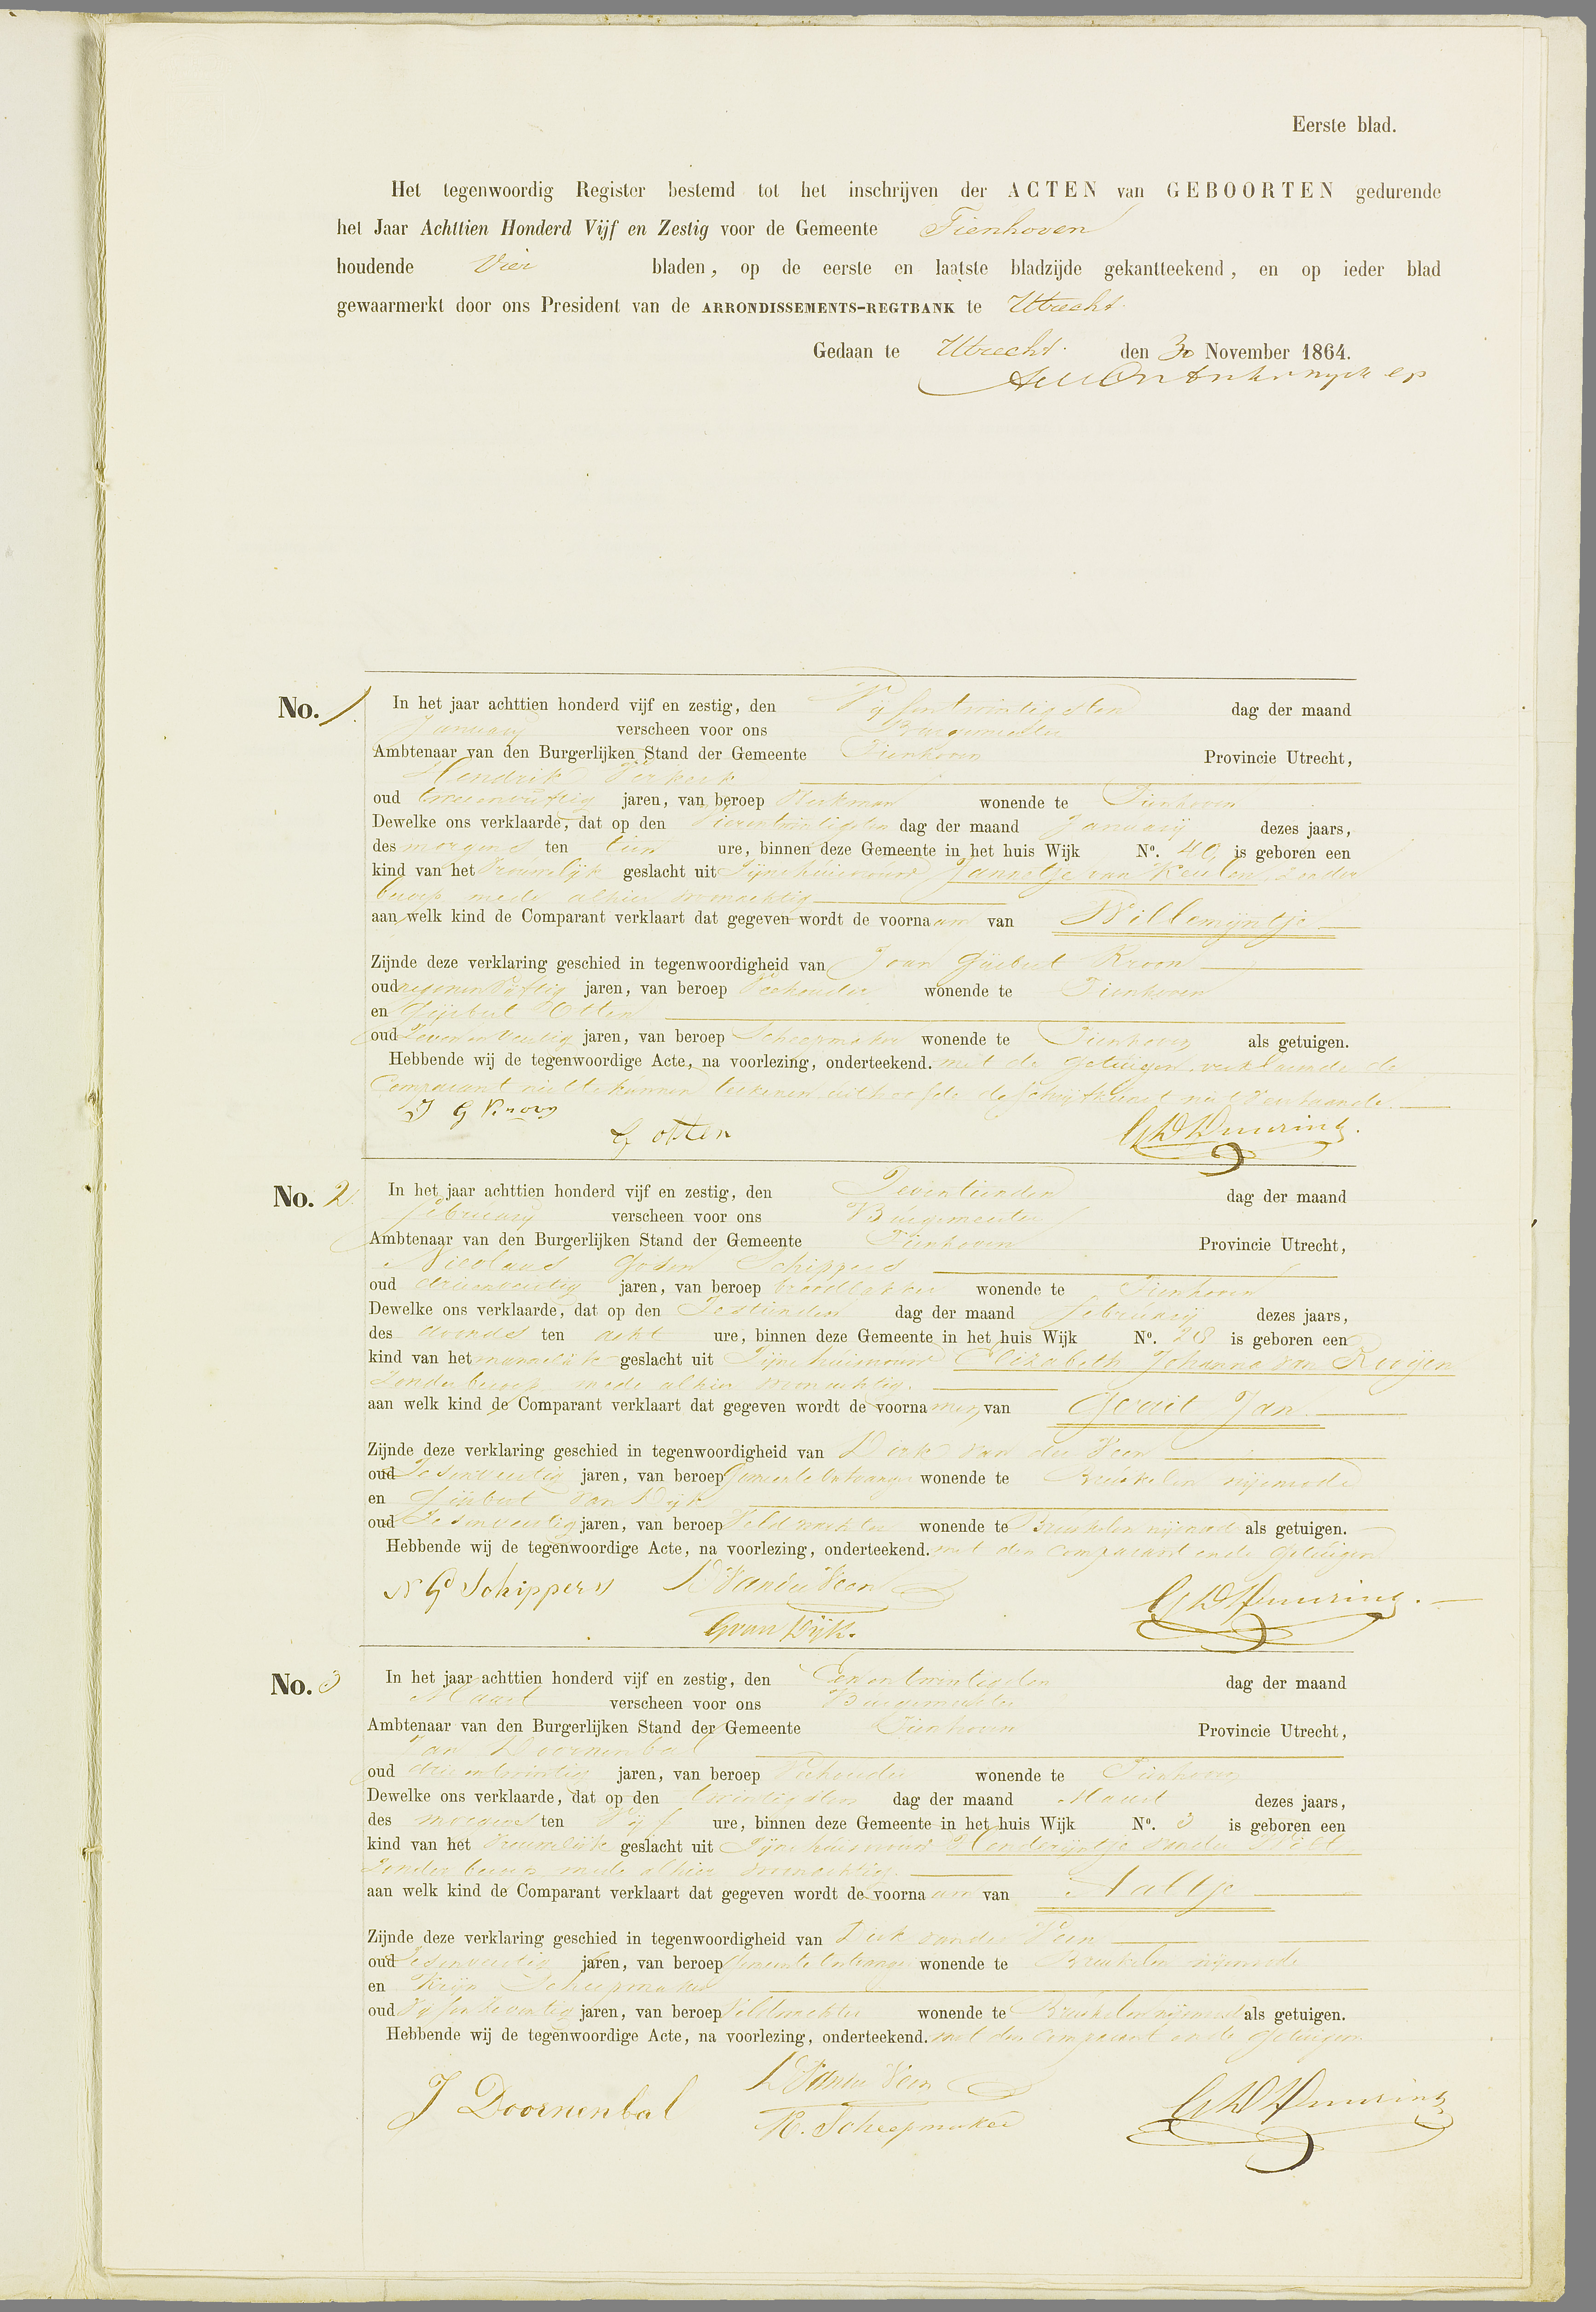 Eerste blad.
Het tegenwoordig Register bestemd tot het inschrijven der ACTEN van GEBOORTEN gedurende
het Jaar Achttien Honderd Vijf en Zestig voor de Gemeente Tienhoven
houdende Vier bladen, op de eerste en laatste bladzijde gekantteekend, en op ieder blad
gewaarmerkt door ons President van de ARRONDISSEMENTS-REGTBANK te Utrecht.
Gedaan te Utrecht. den 30 November 1864.
No. 1. In het jaar achttien honderd vijf en zestig, den Vijfentwintigsten dag der maand
January verscheen voor ons Burgemeester
Ambtenaar van den Burgerlijken Stand der Gemeente Tienhoven Provincie Utrecht,
Hendrik Verkerk
oud tweeenvijftig jaren, van beroep Werkman wonende te Tienhoven
Dewelke ons verklaarde, dat op den Vierentwintigsten dag der maand January dezes jaars,
des morgens ten tien ure, binnen deze Gemeente in het huis Wijk No. 40 is geboren een
kind van het Vrouwelijk geslacht uit Zijne huisvrouw Jannetje van Keulen, zonder
beroep mede alhier woonachtig
aan welk kind de Comparant verklaart dat gegeven wordt de voornaam van Willemijntje
Zijnde deze verklaring geschied in tegenwoordigheid van Jan Gijsbert Kroon
oud negenenvijftig jaren, van beroep Veehouder wonende te Tienhoven
en Gijsbert Otten
oud Zevenenveertig jaren, van beroep Scheepmaker wonende te Tienhoven als getuigen.
Hebbende wij de tegenwoordige Acte, na voorlezing, onderteekend. met de getuigen verklarende de
Comparant niet te kunnen teekenen uit hoofde de schrijfkunst niet Verstaande.
J G Kroon
G Otten
No. 2. In het jaar achttien honderd vijf en zestig, den Zeventienden dag der maand
February verscheen voor ons Burgemeester
Ambtenaar van den Burgerlijken Stand der Gemeente Tienhoven Provincie Utrecht,
Nicolaas Schippers
oud drieenveertig jaren, van beroep broodbakker wonende te Tienhoven
Dewelke ons verklaarde, dat op den Zestienden dag der maand February dezes jaars,
des avonds ten acht ure, binnen deze Gemeente in het huis Wijk No. 28 is geboren een
kind van het mannelijk geslacht uit Zijne huisvrouw Elizabeth Johanna van Rooijen
Zonder beroep mede alhier woonachtig.
aan welk kind de Comparant verklaart dat gegeven wordt de voornamen van Gerrit Jan
Zijnde deze verklaring geschied in tegenwoordigheid van Dirk van der Veen
oud Zesenveertig jaren, van beroep Gemeente Ontvanger wonende te Breukelen nijenrode
en Gijsbert van Dijk
oud Zesenveertig jaren, van beroep Veldwachter wonende te Breukelen nijenrode als getuigen.
Hebbende wij de tegenwoordige Acte, na voorlezing, onderteekend. met den Comparant en de getuigen
N Gd Schippers D Van der Veen
G van Dijk.
No. 3 In het jaar achttien honderd vijf en zestig, den Eenentwintigsten dag der maand
Maart verscheen voor ons Burgemeester
Ambtenaar van den Burgerlijken Stand der Gemeente Tienhoven Provincie Utrecht,
Jan Doornenbal
oud drieentwintig jaren, van beroep Veehouder wonende te Tienhoven
Dewelke ons verklaarde, dat op den twintigsten dag der maand Maart dezes jaars,
des morgens ten Vijf ure, binnen deze Gemeente in het huis Wijk No. 3 is geboren een
kind van het Vrouwelijk geslacht uit Zijne huisvrouw Henderijntje van der Wilt
Zonder beroep mede alhier woonachtig.
aan welk kind de Comparant verklaart dat gegeven wordt de voornaam van Aaltje
Zijnde deze verklaring geschied in tegenwoordigheid van Dirk van der Veen
oud Zesenveertig jaren, van beroep Gemeente Ontvanger wonende te Breukelen nijenrode
en Krijn Scheepmaker
oud Vijfenzeventig jaren, van beroep Veldwachter wonende te Breukelen nijenrode als getuigen.
Hebbende wij de tegenwoordige Acte, na voorlezing, onderteekend. met den Comparant en de getuigen
J Doornenbal D Van der Veen
K. Scheepmaker